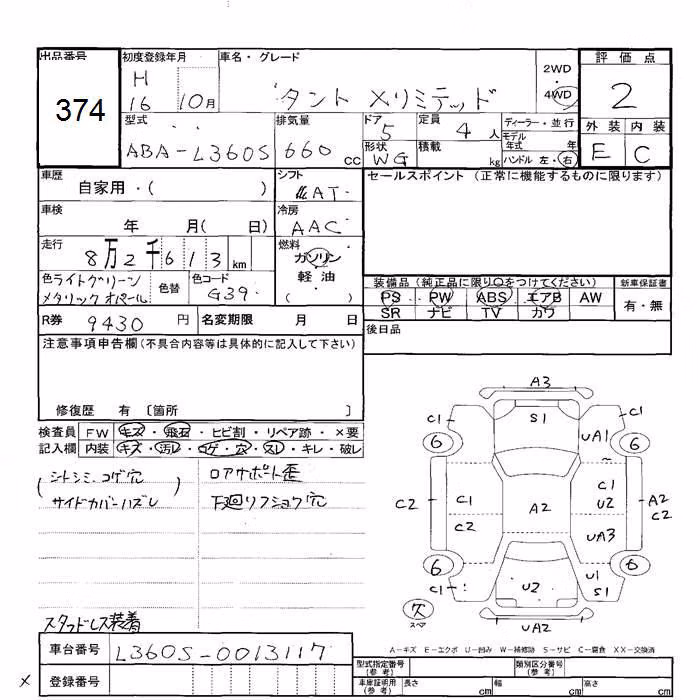 出品番号 初度登録年月 車名・グレード 評価点
374 H 16 10月 タント Xリミテッド 2WD 4WD 2
型式 排気量 ドア 定員 ディーラー・並行 外装 内装
ABA-L360S 660 cc 5 4人 モデル年式 年 E C
形状 WG 積載 kg ハンドル 左・右
車歴 シフト セールスポイント (正常に機能するものに限ります)
自家用・( ) AT
車検 冷房
年 月( 日) AAC
走行 燃料
8万2千613km ガソリン
軽・油
( )
色 ライトグリーンメタリックオパール 色替 色コード G39
装備品 (純正品に限り○をつけてください) 新車保証書
PS PW ABS エアB AW 有・無
SR ナビ TV カワ
R券 9430円 名変期限 月 日 後日品
注意事項申告欄(不具合内容等は具体的に記入して下さい)
修復歴 有 〔箇所 〕
検査員 FW キズ・飛石・ヒビ割・リペア跡・×要
記入欄 内装 キズ・汚レ・コゲ・穴・スレ・キレ・破レ
(シトシミ、コゲ穴 ロアサポート歪
サイドカバーハズレ) 下廻リフショク穴
スタッドレス装着
A3
C1 S1 C1
6 UA1 6
C2 C1 C1 U2 A2 C2
C2 A2 UA3
6 6
C1 U2 U1 S1
欠 スペア UA2
A-キズ E-エクボ U-凹み W-補修跡 S-サビ C-腐食 XX-交換済
車台番号 L360S-0013117
型式指定番号 (参考) 類別区分番号 (参考)
× 登録番号
車庫証明用 (参考) 長さ cm 幅 cm 高さ cm